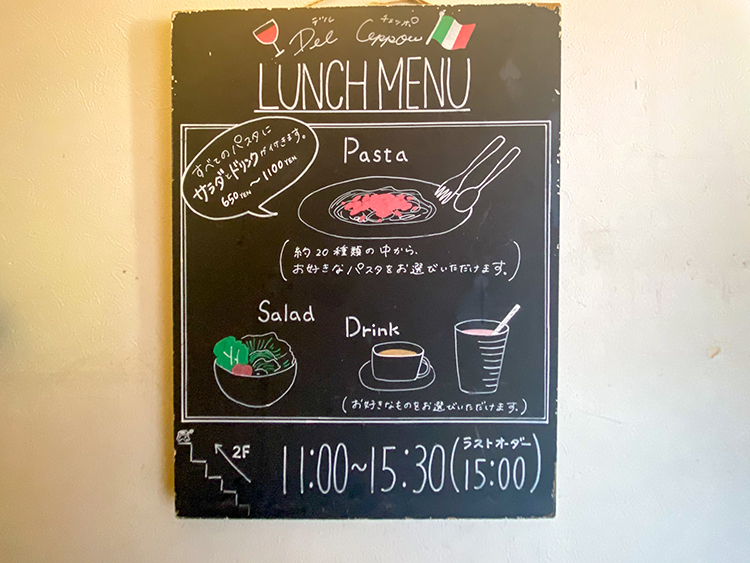 デル チェッポ
Del Ceppou
LUNCH MENU
すべてのパスタに
サラダとドリンクが付きます。
650YEN～1100YEN
Pasta
(約20種類の中から、
お好きなパスタをお選びいただけます。)
Salad
Drink
(お好きなものをお選びいただけます。)
2F
ラストオーダー
11:00～15:30(15:00)